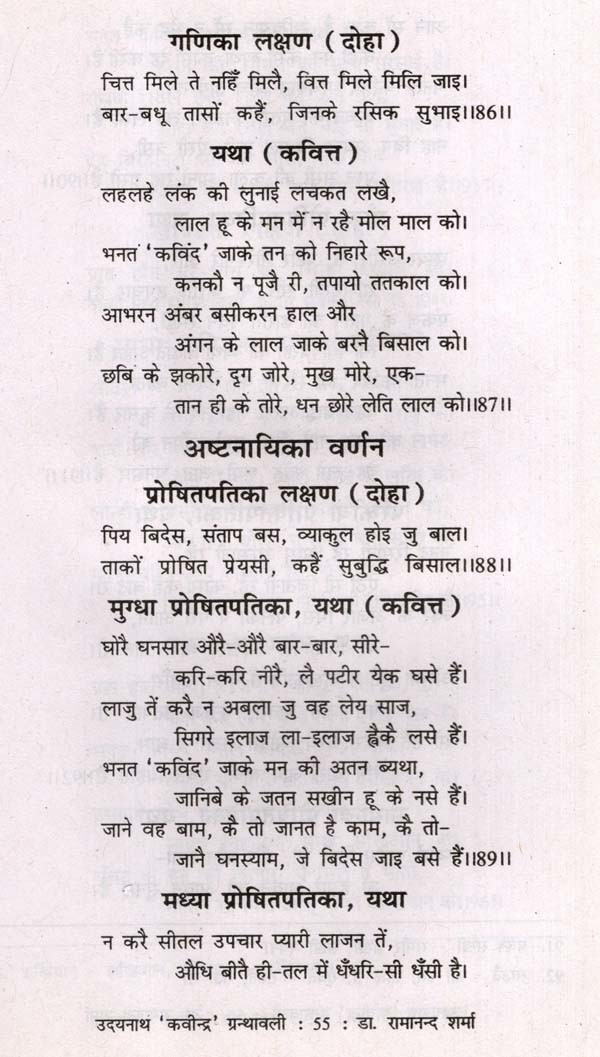 गणिका लक्षण (दोहा)
चित्त मिले ते नहिँ मिलै, वित्त मिले मिलि जाइ।
बार-बधू तासों कहैं, जिनके रसिक सुभाइ।।86।।
यथा (कवित्त)
लहलहे लंक की लुनाई लचकत लखै,
लाल हू के मन में न रहै मोल माल को।
भनत 'कविंद' जाके तन को निहारे रूप,
कनकौ न पूजै री, तपायो ततकाल को।
आभरन अंबर बसीकरन हाल और
अंगन के लाल जाके बरनै बिसाल को।
छबि के झकोरे, दृग जोरे, मुख मोरे, एक-
तान ही के तोरे, धन छोरे लेति लाल को।।87।।
अष्टनायिका वर्णन
प्रोषितपतिका लक्षण (दोहा)
पिय बिदेस, संताप बस, व्याकुल होइ जु बाल।
ताकों प्रोषित प्रेयसी, कहैं सुबुद्धि बिसाल।।88।।
मुग्धा प्रोषितपतिका, यथा (कवित्त)
घोरै घनसार औरै-औरै बार-बार, सीरे-
करि-करि नीरै, लै पटीर येक घसे हैं।
लाजु तें करै न अबला जु वह लेय साज,
सिगरे इलाज ला-इलाज ह्वैकै लसे हैं।
भनत 'कविंद' जाके मन की अतन ब्यथा,
जानिबे के जतन सखीन हू के नसे हैं।
जाने वह बाम, कै तो जानत है काम, कै तो-
जानै घनस्याम, जे बिदेस जाइ बसे हैं।।89।।
मध्या प्रोषितपतिका, यथा
न करै सीतल उपचार प्यारी लाजन तें,
औधि बीतै ही-तल में धँधरि-सी धँसी है।
उदयनाथ 'कवीन्द्र' ग्रन्थावली : 55 : डा. रामानन्द शर्मा